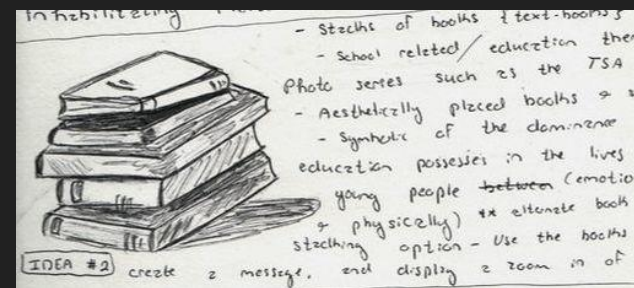 - Stacks of books { text-books }
- School related / education
Photo series such as the TSA
- Aesthetically placed books &
- Symbolic of the dominance
education possesses in the lives
young people between (emotio
& physically) ** alternate book
stacking option - Use the books
IDEA #2 create a message, and display a zoom in of